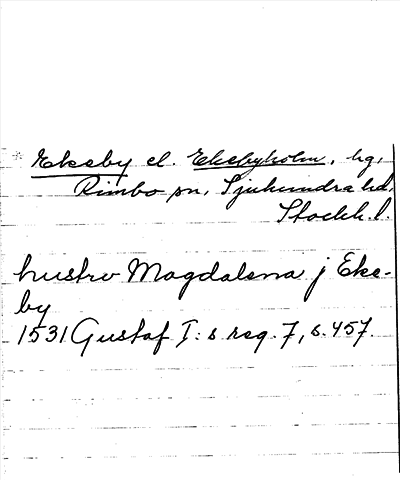 Ekeby el. Ekebyholm, hg,
Rimbo sn, Sjuhundra hd,
Stockh. l.
hustro Magdalena j Eke-
by
1531 Gustaf I:s reg. 7, s. 457.